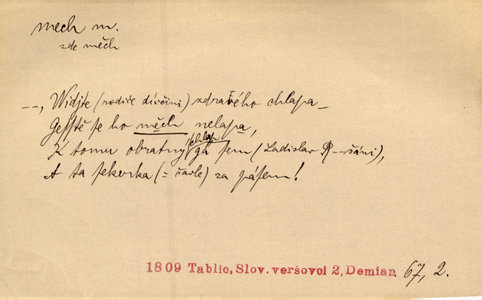 mech m.
zde měch
–„ Widjte (rodiče dívčini) zdravého chlapa –
Gesstě se ho měch nelapa,
chlap
K tomu obratný gá sem (Ladislav
A ta sekerka (= šavle) za pásem!
1809 Tablic, Slov. veršovci 2, Demian 67, 2.